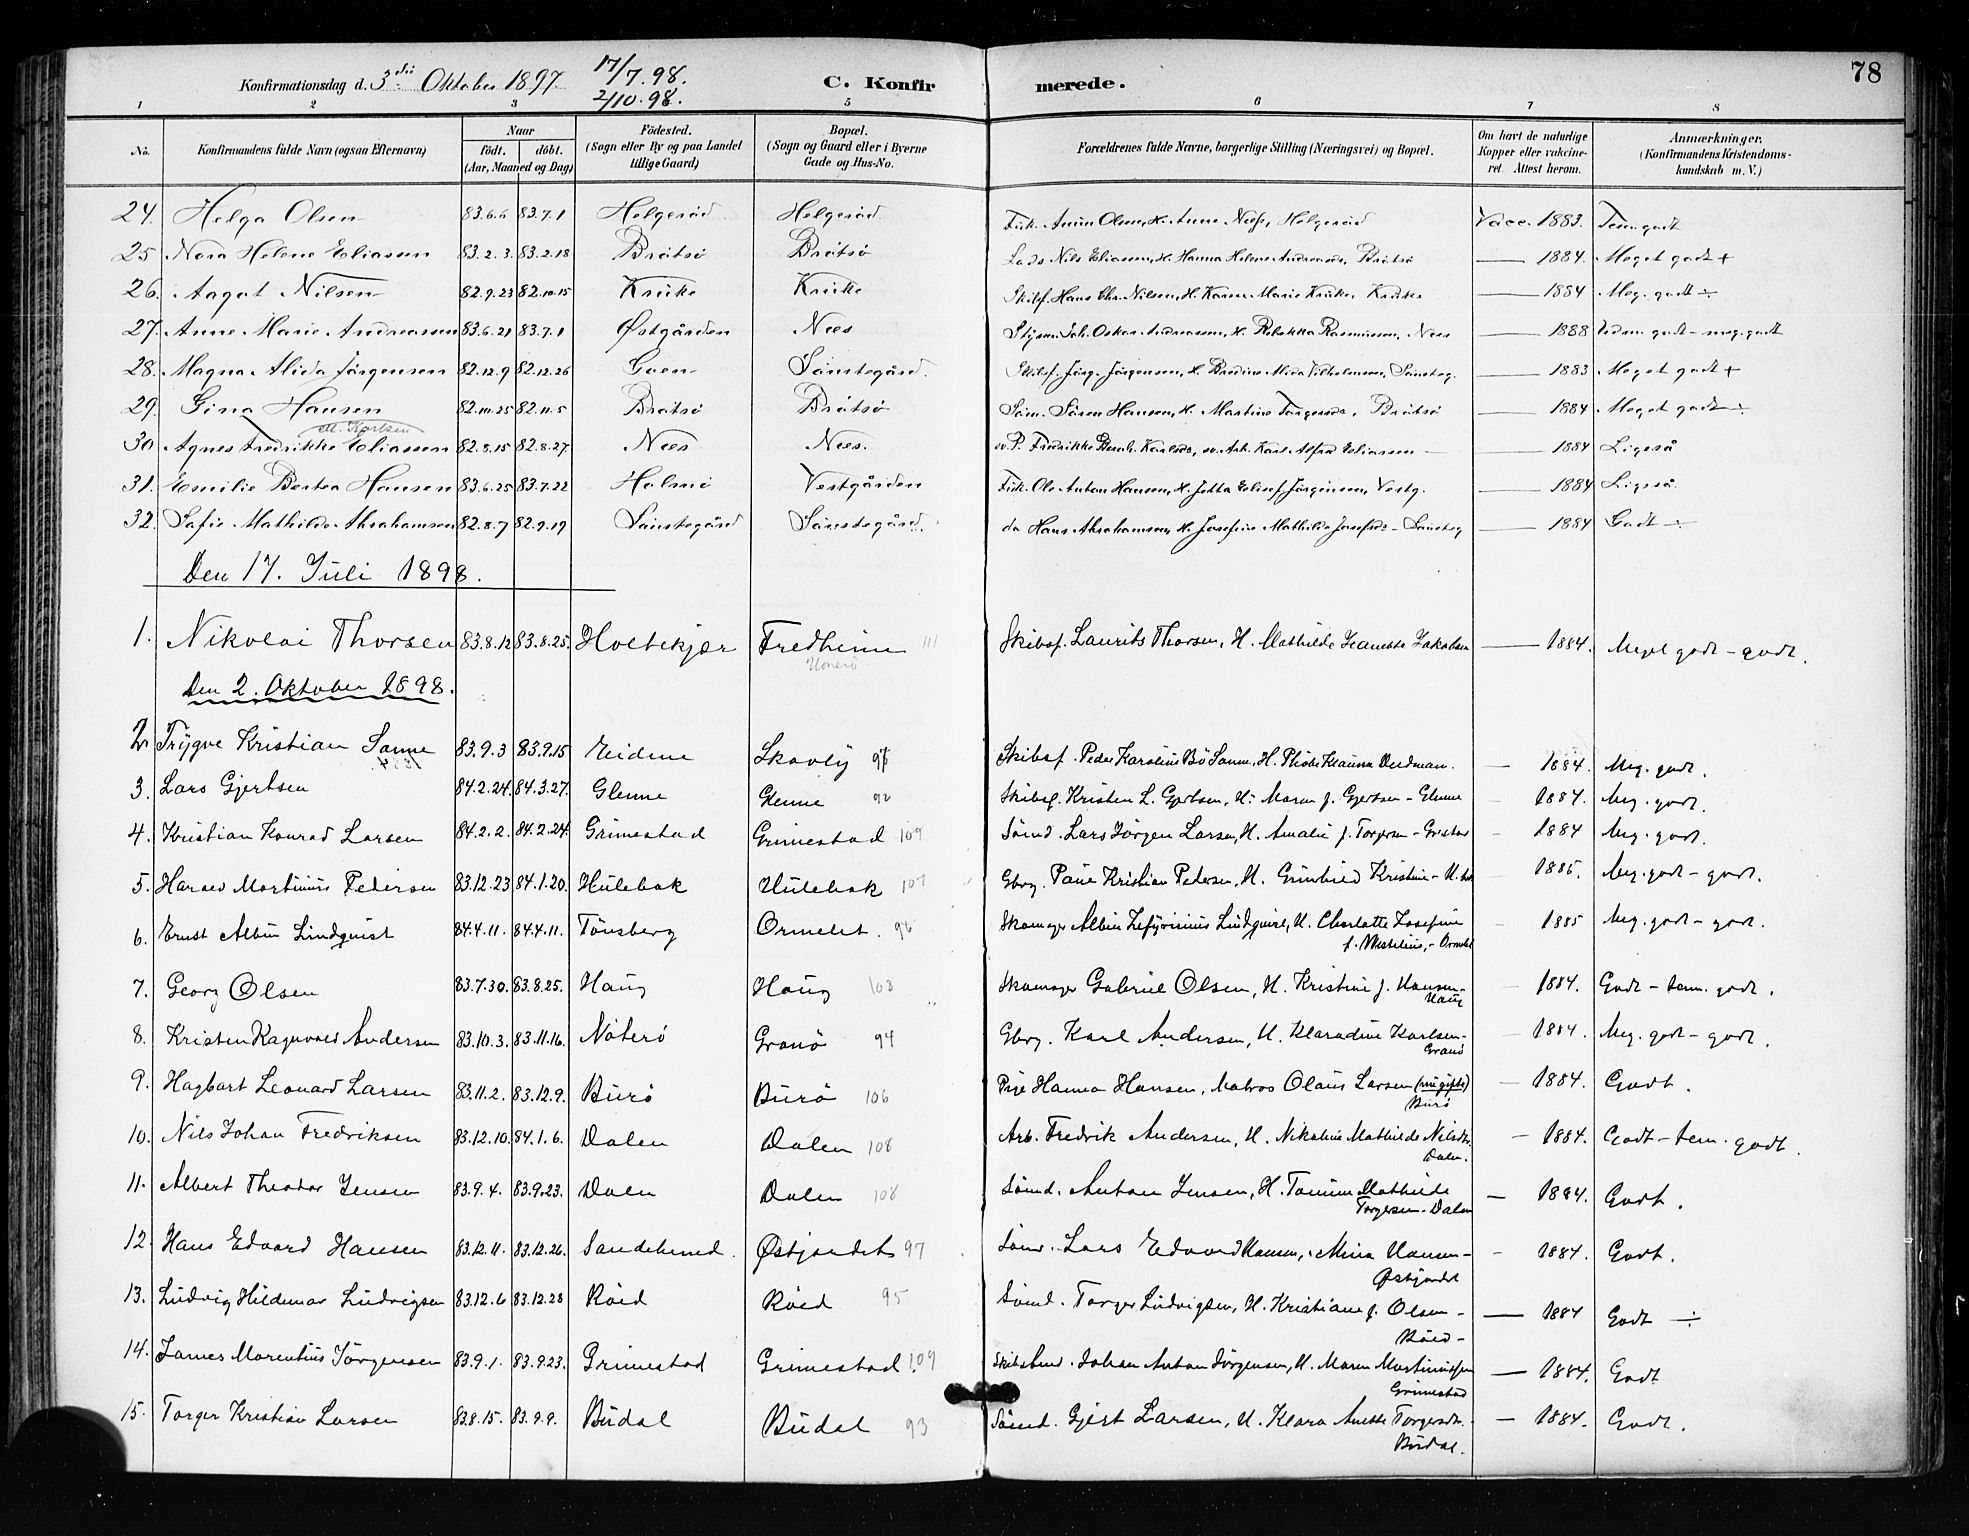 78
Konfirmationsdag d. 3die Oktober 1897. 17/7.98. 2/10.98. C. Konfirmerede.
1 2 3 5 6 7 8
No. Konfirmandens fulde Navn (ogsaa Efternavn) Naar født. døbt. (Aar, Maaned og Dag) Fødested. (Sogn eller By og paa Landet tillige Gaard) Bopæl. (Sogn og Gaard eller i Byerne Gade og Hus-No. Forældrenes fulde Navne, borgerlige Stilling (Næringsvei) og Bopæl. Om havt de naturlige Kopper eller vakcineret. Attest herom. Anmærkninger. (Konfirmandens Kristendomskundskab m. V.)
24. Helga Olsen 83.6.6 83.7.1 Helgerød Helgerød. Olsen, H. Anne Helgerød Vacc. 1883. Tem. godt
25 Nora Helene Eliassen 83.2.3. 83.2.18 Bratsø Bratsø Lods Nils Eliassen, H. Hanna Helene Bratsø — 1884. Meget godt +
26. Aagot Nilsen 82.9.23 82.10.15 Kruke Kruke Skibsf. Hans Chr. Nilsen, H. Karen Marie Kruke. Kruke — 1884 Meg. godt ÷
27. Anne Marie Andreassen 83.6.21 83.7.1 Østgården Nes Styrm. Joh. Oskar Andreassen, H. Rebekka Rasmussen, Nes — 1888 godt – meg. godt
28. Magna Alida Jørgensen 82.12.9 82.12.26 Goen Søndstegård. Skibsf. Jørg. Jørgensen, H. — 1883 Meget godt +
29. Gina Hansen 82.10.25 82.11.5 Bratsø Bratsø Søm. Søren Hansen, H. Martine Bratsø — 1884 Meget godt ÷
ell. Karlsen
30 Agnes Fredrikke Eliassen 82.8.15 82.8.27. Nes Nes. Fredrikke Karl Alfred Eliassen — 1884 Ligeså
31. Emilie Bertea Hansen 83.6.25 83.7.22 Holmø Vestgården Fisk. Ole Anton Hansen, H. Jørgensen, Vestg. — 1884 Ligeså.
32. Sofie Mathilde Abrahamsen 82.8.7 82.9.19 Søndstegård Søndstegård. do Hans Abrahamsen, H. Josefine Mathilde — 1884 Godt ÷
Den 17. Juli 1898.
1. Nikolai Thorsen 83.8.12 83.8.25. Holtekjær Fredheim 111 Skibsf. Laurits Thorsen, H. Mathilde Jeanette Jakobsen — 1884. Meget godt – godt.
Den 2. Oktober 1898.
2. Trygve Kristian Sanne 83.9.3 83.9.15 Eidene Skovly Skibsf. Peder Karolius Bø Sanne, H. — 1884. Meg. godt.
3. Lars Gjertsen 84.2.24. 84.3.27. Glenne Glenne 92 Skibsf. Kristen L. Gjertsen, H. Maren f. Gjertsen – Glenne – 1884. Meg. godt.
4. Kristian Konrad Larsen 84.2.2. 84.2.24. Grimestad Grimestad 109 Sømd. Lars Jørgen Larsen, H. Amalie f. Torgersen – – 1884 Meg. godt.
5. Harald Martinius Pedersen 83.12.23 84.1.20. Hulebak Hulebak 107 Gbrg. Paul Kristian Pedersen, H. Gunhild Kristine – – 1885. Meg. godt – godt.
6. Ernst Albin Lindquist 84.4.11. 84.4.11. Tønsberg Ormelet. 96 Skomager Albin Lindquist, H. Charlotte Josefine – 1885 Meg. godt – godt.
7. Georg Olsen 83.7.30. 83.8.25. Haug Haug 103 Skomager Gabriel Olsen, H. Kristine f. Hansen – Haug – 1884. Godt – tem. godt.
8. Kristen Ragnvald Andersen 83.10.3. 83.11.16. Nøterø Granø 94 Gbrg. Karl Andersen, H. Klaradine Karlsen – Granø – 1884. Meg. godt – godt.
9. Hagbart Leonard Larsen 83.11.2. 83.12.9. Burø Burø 106 Pige Hanna Hansen, Matros Olaus Larsen (ungifte) Burø – 1884. Godt.
10. Nils Johan Fredriksen 83.12.10. 84.1.6. Dalen Dalen 108 Arb. Fredrik Andersen, H. Nikoline Mathilde Nilsdtr. Dalen. – 1884. Godt – tem. godt.
11. Albert Theodor Jensen 83.9.4. 83.9.23. Dalen Dalen 108 Sømd. Anton Jensen, H. Mathilde Torgersen – Dalen – 1884. Godt.
12. Hans Edvard Hansen 83.12.11. 83.12.26. Sandebmed. Østjordet 97 Sømd. Lars Edvard Hansen, Mina Hansen – Østjordet – 1884. Godt.
13. Ludvig Hildemar Ludvigsen 83.12.6 83.12.28 Røed Røed 95 Sømd. Torger Ludvigsen, H. Kristiane f. Olsen – Røed – — 1884 Godt ÷
14. James Marentius Jørgensen 83.9.1. 83.9.23. Grimestad Grimestad 109 Johan Anton Jørgensen, H. Maren Grimestad — 1884. Godt
15. Torger Kristian Larsen 83.8.15. 83.9.9. Budal Budal 93 Sømd. Gjert Larsen, H. Klara Anette Torgersdtr. Budal. – 1884. Godt.